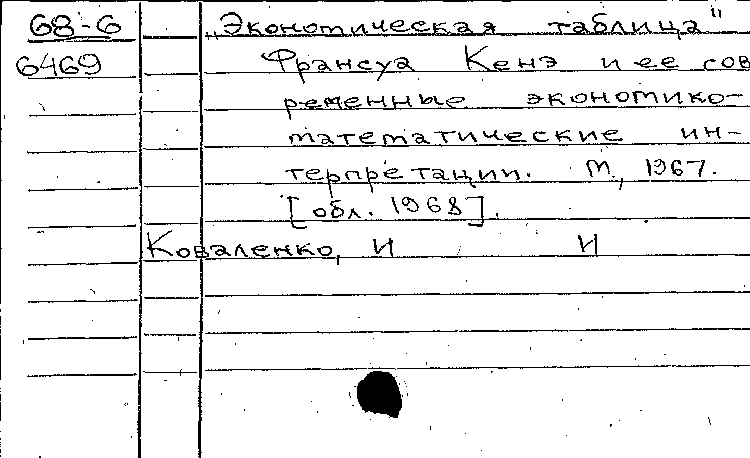 68-6 „Экономическая таблица"
6469 Франсуа Кенэ и ее сов
ременные экономико-
математические ин-
терпретации. М., 1967.
[обл. 1968].
Коваленко, И И